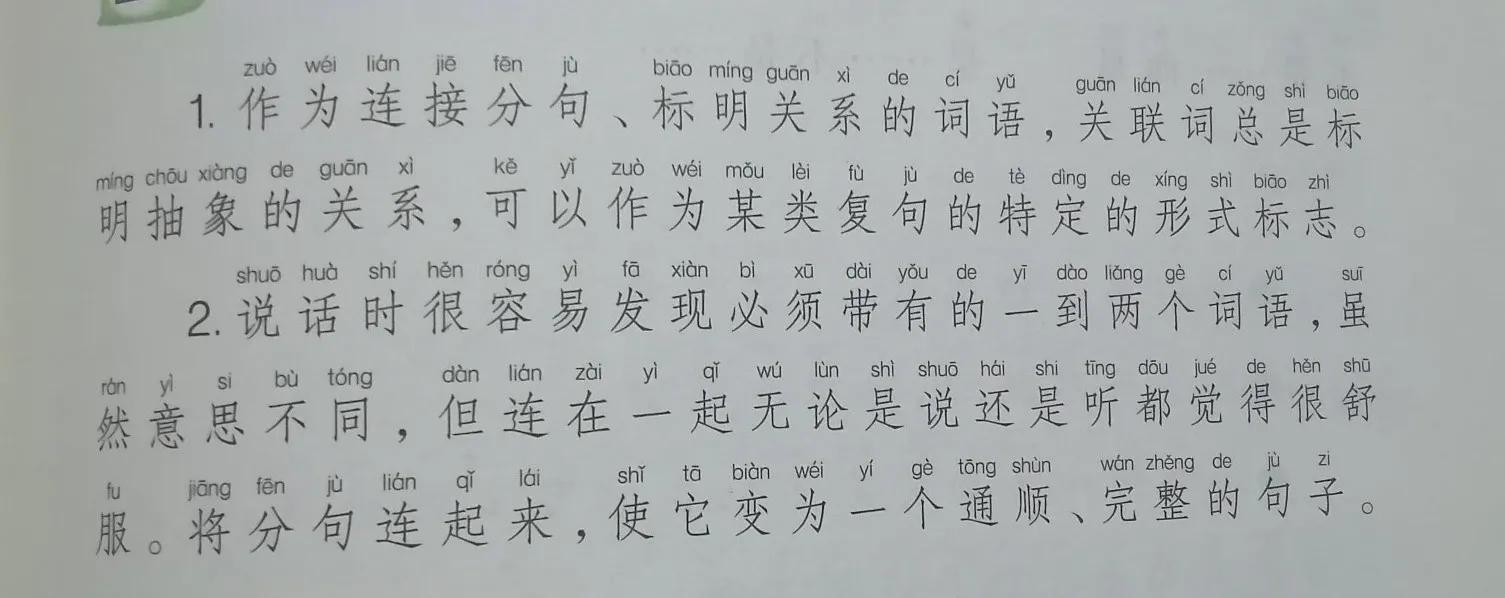 zuò wéi lián jiē fēn jù biāo míng guān xì de cí yǔ guān lián cí zǒng shì biāo
1. 作为连接分句、标明关系的词语，关联词总是标
míng chōu xiàng de guān xì kě yǐ zuò wéi mǒu lèi fù jù de tè dìng de xíng shì biāo zhì
明抽象的关系，可以作为某类复句的特定的形式标志。
shuō huà shí hěn róng yì fā xiàn bì xū dài yǒu de yī dào liǎng gè cí yǔ suī
2. 说话时很容易发现必须带有的一到两个词语，虽
rán yì si bù tóng dàn lián zài yì qǐ wú lùn shì shuō hái shi tīng dōu jué de hěn shū
然意思不同，但连在一起无论是说还是听都觉得很舒
fu jiāng fēn jù lián qǐ lái shǐ tā biàn wéi yí gè tōng shùn wán zhěng de jù zi
服。将分句连起来，使它变为一个通顺、完整的句子。